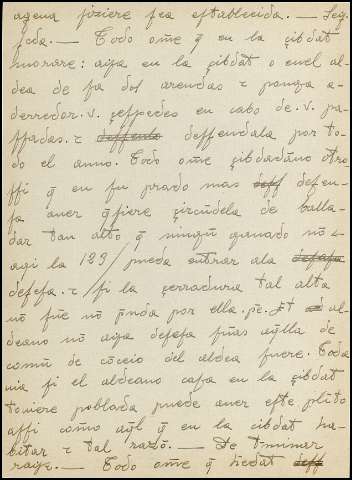 agena fiziere sea establecida. — Seg
poda. — Todo om̃e q̃ en la çibdat
morare: aya en la çibdat o en el al
dea de sa dos arençadas τ ponga a
derredor .v. çespedes en cabo de .v. pa
ssadas. τ deffenda la por to
do el anno. Todo om̃e çibdadano otro
ssi q̃ en su prado mas defen
sa auer q̃siere çircũdela de balla
dar tan alto q̃ ningũ ganado nõ
aqi la 123/ pueda entrar ala defesa
defesa. τ / si la çerradura tal alta
nõ fue nõ p̃nda por ella. p̃e. Et al
deano nõ aya defesa sinas aq̃lla de
comũ de cõceio del aldea fuere. Toda
uia si el aldeano casa en la çibdat
touiere poblada puede auer este plito
assi cõmo aq̃l q̃ en la cibdat ha
bitar τ tal razõ. — De t̃minar
rayz. — Todo om̃e q̃ h̃edat